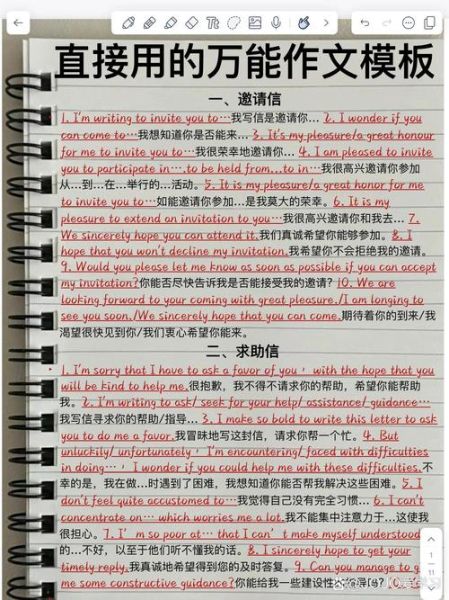 直接用的万能作文模板
一、邀请信
1. I'm writing to invite you to…我写信是邀请你… 2. I wonder if you
can come to…我想知道你是否能来… 3. It's my pleasure/a great honour
for me to invite you to…我很荣幸地邀请你… 4. I am pleased to invite
you to participate in….to be held from...to in…我很高兴邀请你参加
从...到...在...举行的...活动。5. It is my pleasure/a great honor for me
to invite you to…如能邀请你参加...是我莫大的荣幸。6. It is my
pleasure to extend an invitation to you…我很高兴邀请你和我去… 7.
We sincerely hope you can attend it.我们真诚希望你能够参加。8. I
hope that you won't decline my invitation.我希望你不会拒绝我的邀请。
9. Would you please let me know as soon as possible if you can accept
my invitation?你能否尽快告诉我是否能接受我的邀请? 10. We are
looking forward to your coming with great pleasure./I am longing to
see you soon./We sincerely hope that you can come.期待着你的到来/我
渴望很快见到你/我们衷心希望你能来。
二、求助信
1. I'm sorry that I have to ask a favor of you，with the hope that you
will be kind to help me.很抱歉，我不得不请求你的帮助，希望你能帮助
我。2. I'm writing to ask/ seek for your help/ assistance/ guidance…
我写信寻求你的帮助/指导… 3. I make so bold to write this letter to ask
you to do me a favor.我冒昧地写这封信，请求你帮一个忙。4. But
unluckily/ unfortunately，I'm encountering/ faced with difficulties
in doing…，I wonder if you could help me with these difficulties.不
幸的是，我在做…时遇到了困难，我想知道你能否帮我解决这些困难。5. I
don't feel quite accustomed to…我觉得自己没有完全习惯… 6. I can't
concentrate on… which worries me a lot.我不能集中注意力于…这使我
很担心。7. I'm so poor at… that I can't make myself understood
的…不好，以至于他们听不懂我的话。8. I sincerely hope to get your
timely reply.我真诚地希望得到您的及时答复。9. Can you manage to g
me some constructive guidance?你能给我一些建设性的指导吗?